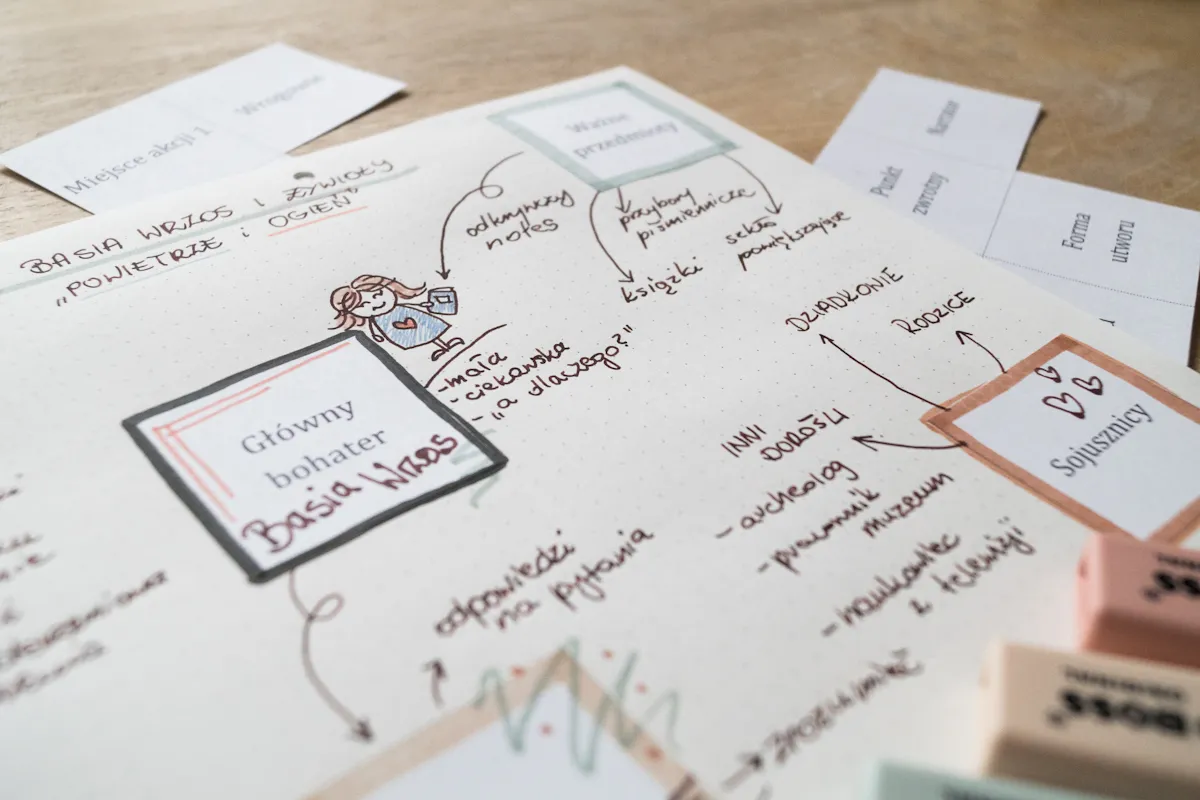 Miejsce akcji 1
Wrogowie
BASIA WRZOS I ŻYWIOŁY
„POWIETRZE i OGIEŃ"
Ważne
przedmioty
odkrywczy
notes
przybory
piśmiennicze
książki
szkło
powiększające
Punkt
zwrotny
Narrator
Forma
utworu
Główny
bohater
Basia Wrzos
-mała
-ciekawska
-„a dlaczego?"
DZIADKOWIE
RODZICE
Sojusznicy
INNI
DOROŚLI
- archeolog
- pracownik
muzeum
- naukowiec
z telewizji
odpowiedzi
na pytania
BOSS
ORIGINAL